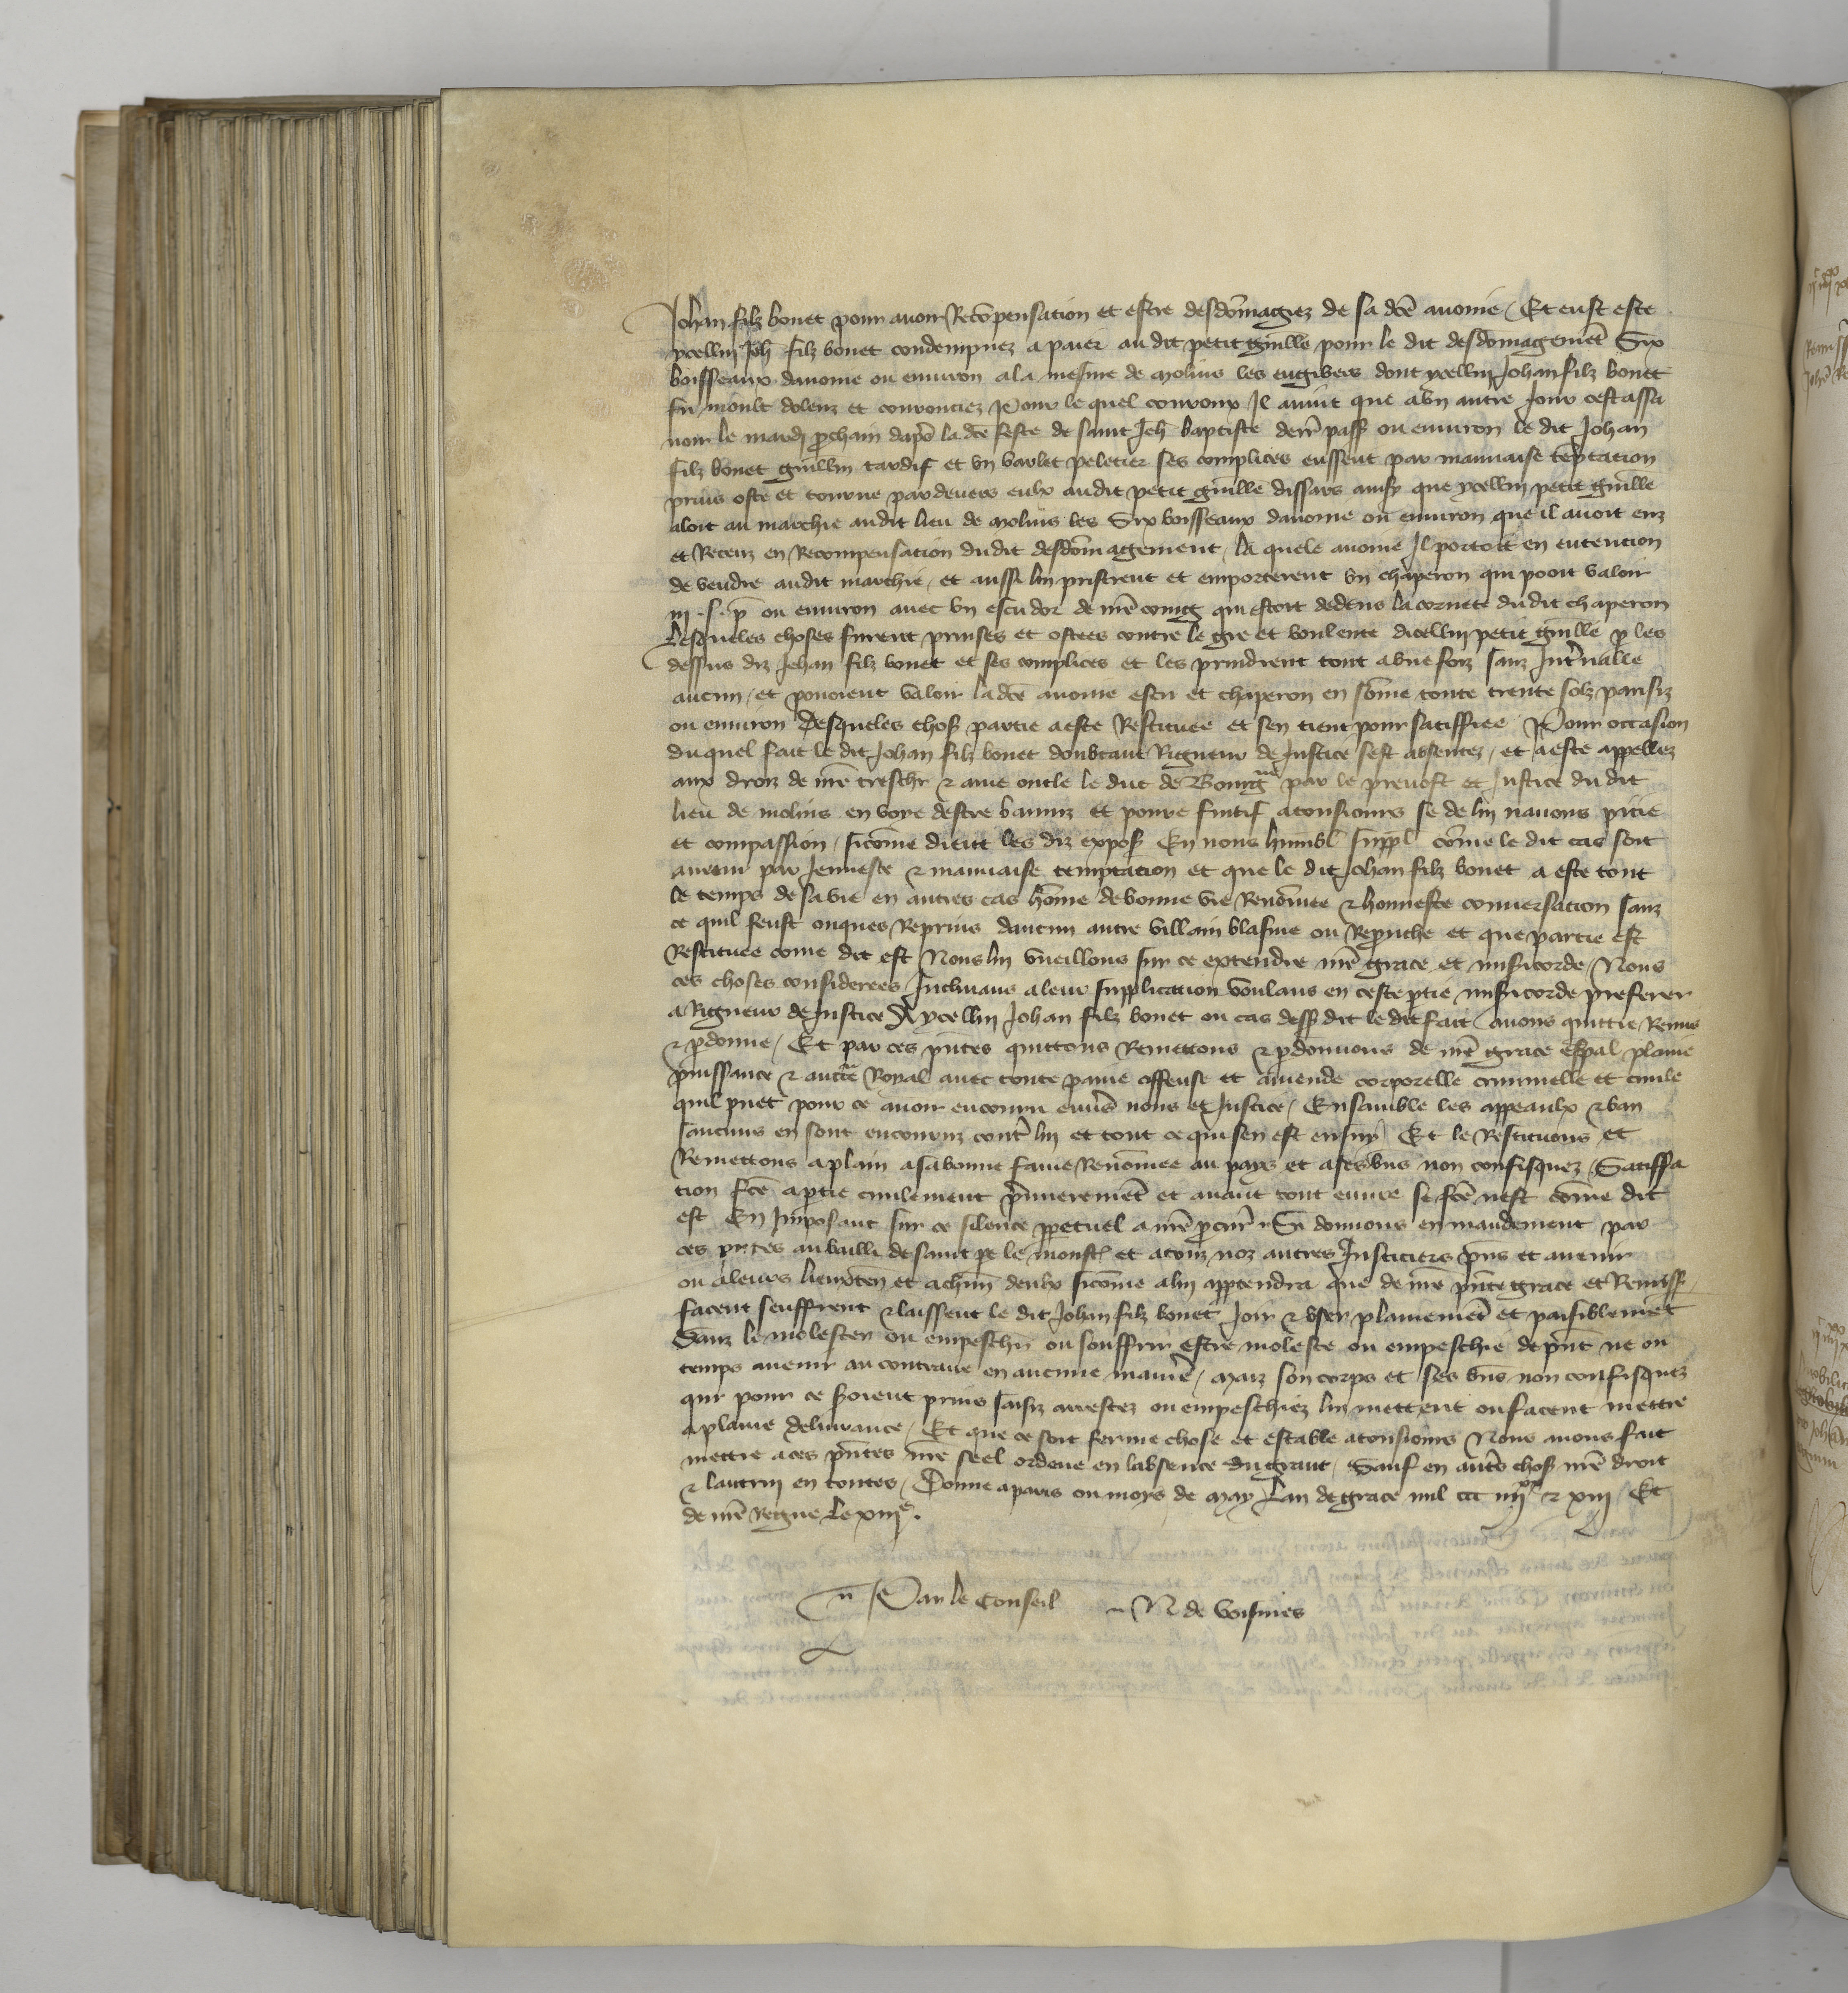 Johan filz bouet pour avoir Recompensation et estre desdomagiez de sa dce avoine / Et eust este
ycellui Joh filz bouet condempnez a paier au dit petit guille pour le dit desdomagemet Six
boisseaux davoine ou environ a la mesure de Molins les engibers dont ycellui Johan filz bouet
fu moult dolenz et courouciez Pour le quel couroux Il avint que a un autre Jour cest assa
voir le mardi pchain daps la dce feste de saint Jeh baptiste derr pass ou environ le dit Johan
filz bouet guillin tardif et un varlet peletier ses complices eussent par mauvaise teptation
prins oste et tourne par devers eulx audit petit guille dissars ainsy que ycellui petit guille
aloit au marchie audit lieu de Molins les Six boisseaux davoine ou environ que il avoit euz
et Receuz en Recompensation dudit desdomagement / la quele avoine Il portoit en entencion
de vendre audit marchie / et aussi lui pristrent et emporterent un chaperon qui pooit valoir
iii . s . p ou environ avec un escu dor de nre coing qui estoit dedens la cornete du dit chaperon
Lesqueles choses furent prinses et ostees contre le gre et voulente dicellui petit guille p les
dessus diz Jehan filz bouet et ses complices et les prindrent tout a une foiz sanz Intvalle
aucun / et povoient valoir la dce avoine escu et chaperon en some toute trente solz parisiz
ou environ Desqueles chos partie a este Restituee et sen tient pour satiffiee Pour occasion
duquel fait le dit Johan filz bouet doubtant Rigueur de Justice sest absentez / et a este appellez
aux droiz de nre treschr & ame oncle le duc de Bourgne par le prevost et Justice du dit
lieu de molins en voye destre banniz et povre fuitif a tousiours se de lui navons pitie
et compassion / sicome dient les diz expos En nous humbl suppl come le dit cas soit
avenu par Jeunesse & mauvaise temptation et que le dit Johan filz bouet a este tout
le temps de sa vie en autres cas home de bonne vie Renomee & honneste conversation sanz
ce quil feust onques Reprins daucun autre villain blasme ou Reprouche et que partie est
Restituee come dit est Nous lui vueillons sur ce extendre nre grace et misicorde / Nous
ces choses considerees Inclinans a leur supplication voulans en ceste ptie misicorde preferer
a Rigueur de Justice A ycellui Johan filz bouet ou cas dess dit le dit fait avons quittie / Remis
& pdonne / Et par ces pntes quittons Remettons & pdonnons de nre grace espal plaine
puissance & aucte Royal avec toute paine offense et amende corporelle criminelle et civile
quil puet pour ce avoir encouru envs nous et Justice / Ensamble les appeaulx & ban
saucuns en sont encouruz cont lui et tout ce qui sen est ensuy Et le Restituons et
Remettons a plain a sa bonne fame Renomee au pays et a ses bns non confisquez / Satiffa
tion fce a ptie civilement pmieremet et avant tout euvre se fce nest come dit
est En Imposant sur ce silence ppetuel a nre pcur Si donnons en mandement par
ces pntes au bailli de saint pe le monst et a touz noz autres Justiciers pns et avenir
ou a leurs lieuxten et a chun deulx sicome a lui apptendra que de nre pnte grace et Remiss
facent seuffrent & laissent le dit Johan filz bouet Joir & user plainemet et paisiblemet
Sanz le molester ou empeschr ou souffrir estre moleste ou empeschie de pnt ne ou
temps avenir au contraire en aucune manie / Maiz son corps et ses bns non confisquez
qui pour ce seroient prins saisiz arrestez ou empeschiez lui mettent ou facent mettre
a plaine delivrance / Et que ce soit ferme chose et estable a tousiours Nous avons fait
mettre a ces pntes nre seel ordene en labsence du grant / Sauf en auts chos nre droit
& lautrui en toutes / Donne a paris ou moys de May Lan de grace mil ccc iiiixx & xiii Et
de nre Regne le xiiie .
Par le Conseil N de Voisines